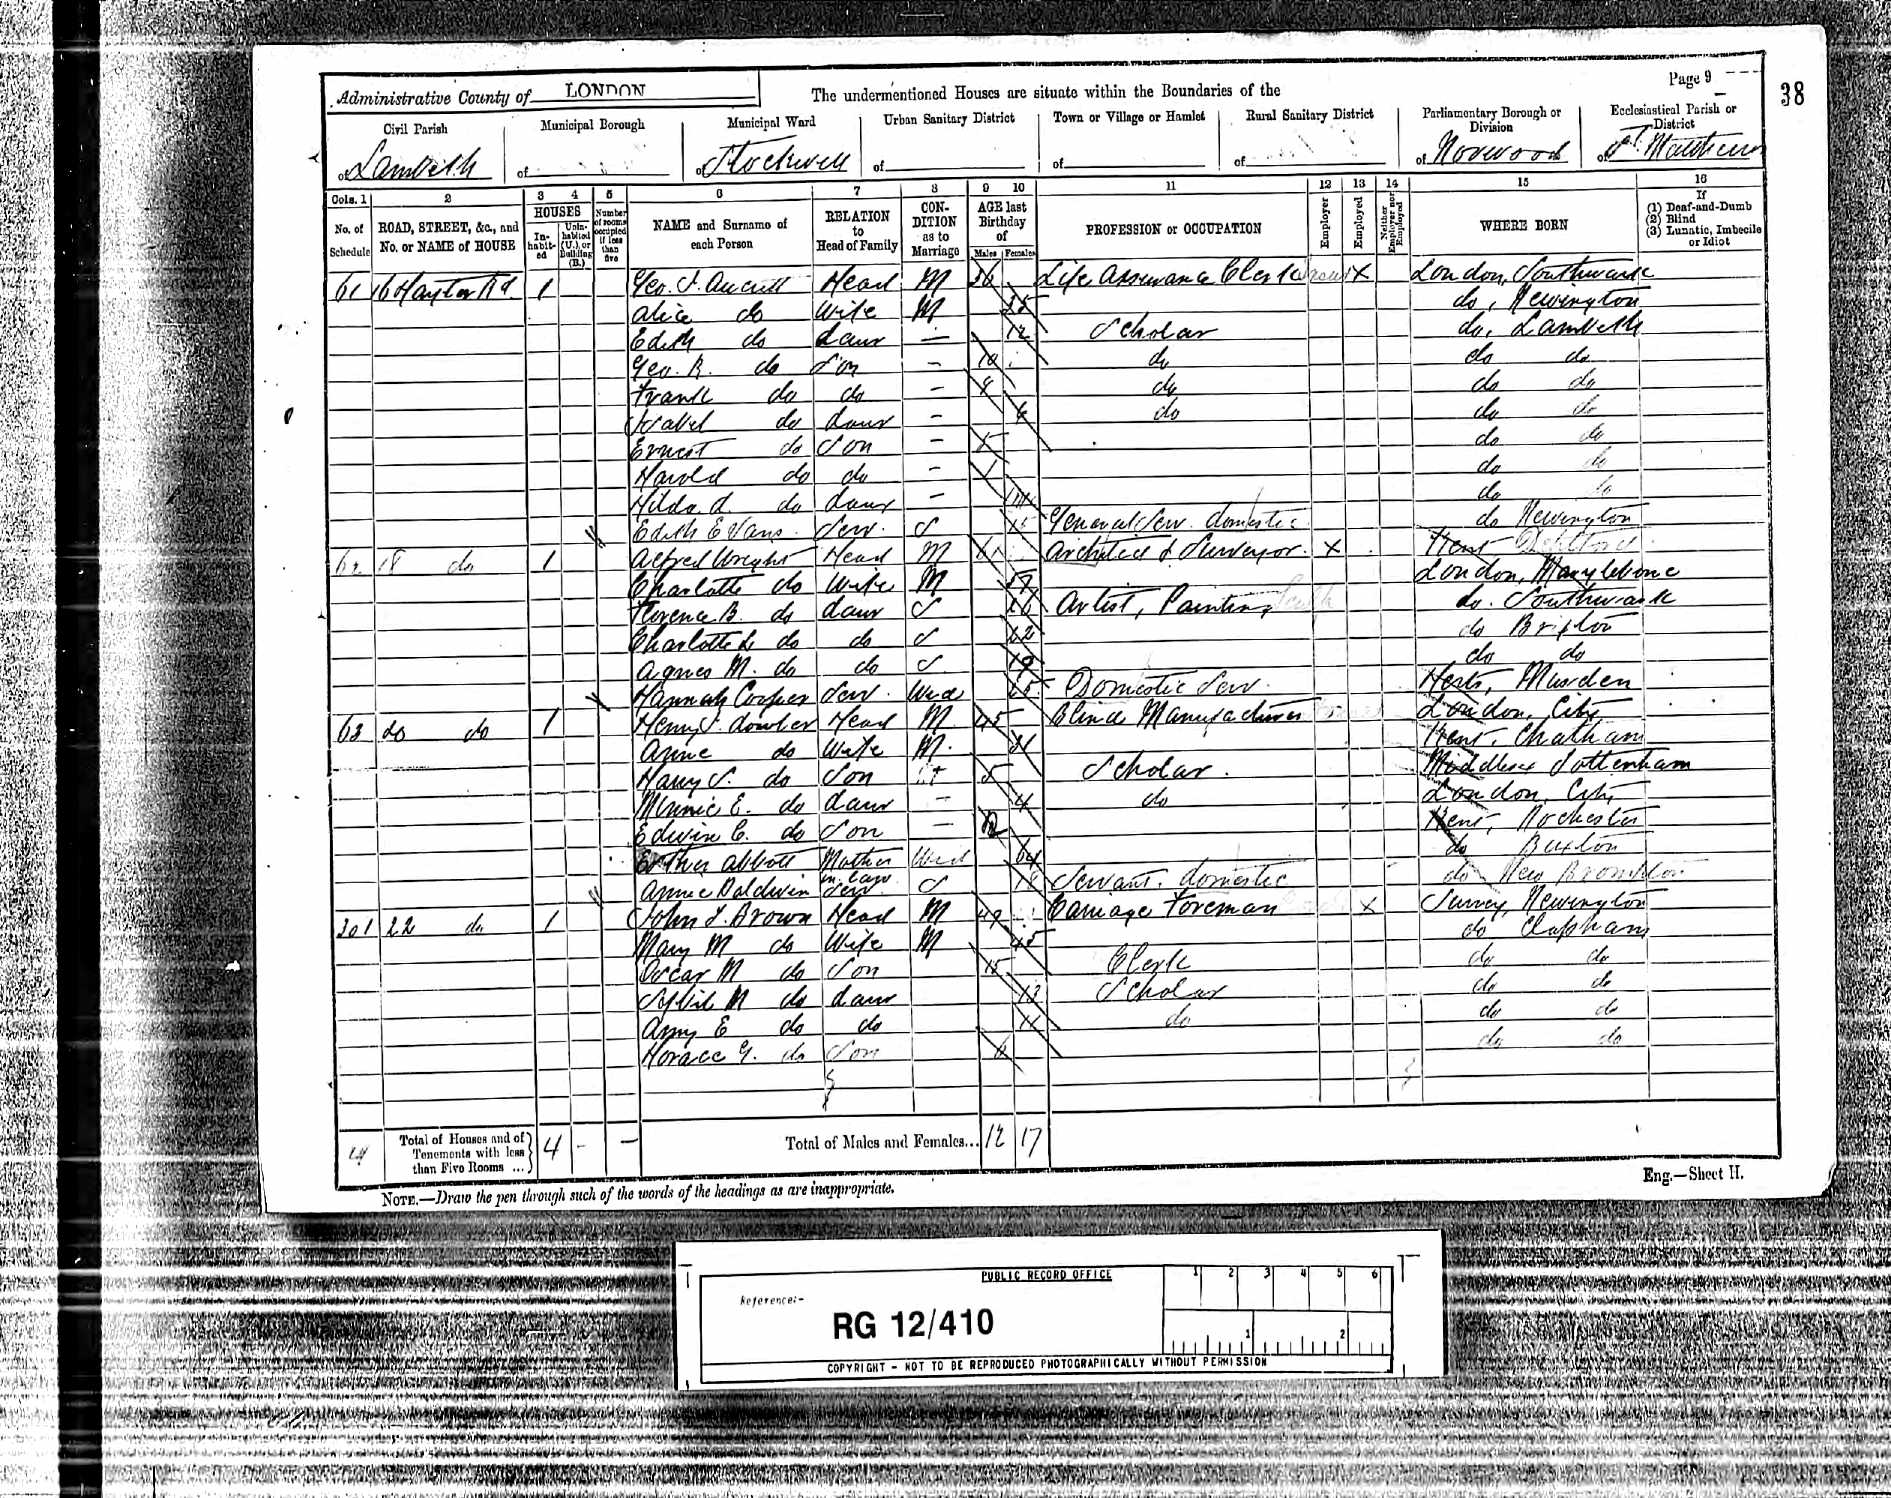 Page 9
38
Administrative County of LONDON
The undermentioned Houses are situate within the Boundaries of the
Civil Parish
of Lambeth
Municipal Borough
of
Municipal Ward
of Stockwell
Urban Sanitary District
of
Town or Village or Hamlet
of
Rural Sanitary District
of
Parliamentary Borough or Division
of Norwood
Ecclesiastical Parish or District
of St. Matthew
Cols. 1 2 3 4 5 6 7 8 9 10 11 12 13 14 15 16
No. of Schedule
ROAD, STREET, &c., and No. or NAME of HOUSE
HOUSES
In-habit-ed
Unin-habited (U.), or Building (B.)
Number of rooms occupied if less than five
NAME and Surname of each Person
RELATION to Head of Family
CON-DITION as to Marriage
AGE last Birthday of
Males Females
PROFESSION or OCCUPATION
Employer
Employed
Neither Employer nor Employed
WHERE BORN
If
(1) Deaf-and-Dumb
(2) Blind
(3) Lunatic, Imbecile or Idiot
61 16 Hayter Rd 1 Geo. Head M 36 Life Assurance Clerk X London, Southwark
Alice do Wife M 35 do, Newington
Edith do Daur — 12 Scholar do, Lambeth
Geo. R. do Son — 10 do do do
Frank do do — 8 do do do
Isabel do Daur — 6 do do do
Ernest do Son — 5 do do
Harold do do — 1 do do
Hilda do Daur — do do
Edith Evans Serv. S 15 General Serv. domestic do Newington
62 18 do 1 Alfred Wright Head M 61 Architect & Surveyor X Kent Deptford
Charlotte do Wife M 57 London, Marylebone
Florence B. do Daur S 26 Artist, Painting do. Southwark
Charlotte do do S 22 do Brixton
Agnes M. do do S 19 do do
Hannah Cooper Serv. Wid 65 Domestic Serv. Herts,
63 do do 1 Henry Head M 45 Blind Manufacturer London, City
Annie do Wife M 31 Kent, Chatham
Harry S. do Son 5 Scholar Middlesex Tottenham
Minnie E. do Daur — 4 do London, City
Edwin C. do Son — 2 Kent, Rochester
Esther Abbott Mother in law Wid 64 do
Annie Baldwin Serv. S 18 Servant, domestic do New Brompton
22 do 1 John Brown Head M 49 Carriage Foreman X Surrey, Newington
Mary M do Wife M 45 do Clapham
Oscar M do Son 15 Clerk do do
Sybil M do Daur 13 Scholar do do
Amy E do do 11 do do do
Horace G. do Son 6 do do
Total of Houses and of Tenements with less than Five Rooms ... 4 - —
Total of Males and Females... 12 17
NOTE.—Draw the pen through such of the words of the headings as are inappropriate.
Eng.—Sheet H.
PUBLIC RECORD OFFICE
Reference:-
RG 12/410
1 2 3 4 5 6
1 2
COPYRIGHT - NOT TO BE REPRODUCED PHOTOGRAPHICALLY WITHOUT PERMISSION